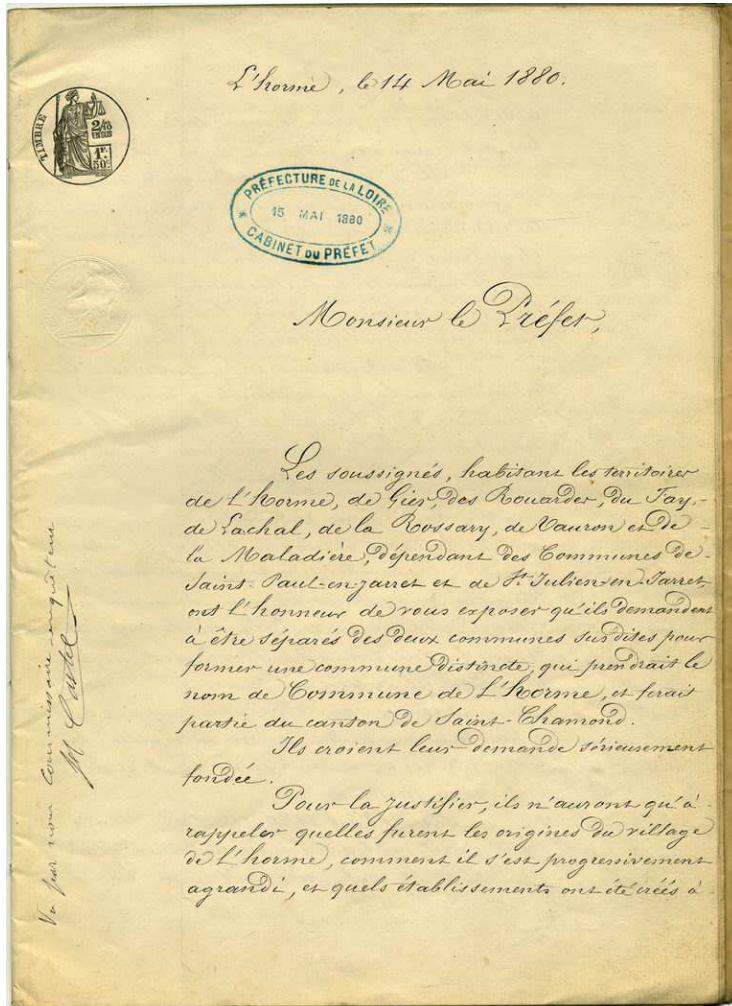 L'horme, le 14 Mai 1880.
TIMBRE
2/10
EN SUS
1F.
50c
PRÉFECTURE DE LA LOIRE
15 MAI 1880
CABINET DU PRÉFET
Monsieur le Préfet,
Les soussignés, habitant les territoires
de L'horme, de Gier, des Rouardes, du Fay,
de Lachal, de la Rossary, de Vauron et de
la Maladière, dépendant des Communes de
Saint-Paul-en-Jarret et de St Julien-en-Jarret,
ont l'honneur de vous exposer qu'ils demandent
à être séparés des deux communes susdites pour
former une commune distincte, qui prendrait le
nom de Commune de L'horme, et ferait
partie du canton de Saint-Chamond.
Ils croient leur demande sérieusement
fondée.
Pour la justifier, ils n'auront qu'à
rappeler quelles furent les origines du village
de L'horme, comment il s'est progressivement
agrandi, et quels établissements ont été créés à
Vu par nous commissaire enquêteur